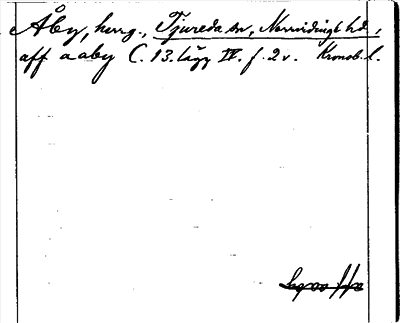 Åby, herrg., Tjureda sn, Norrvidinge hd,
aff aaby C. 13. lägg IV. f. 2 v. Kronob. l.